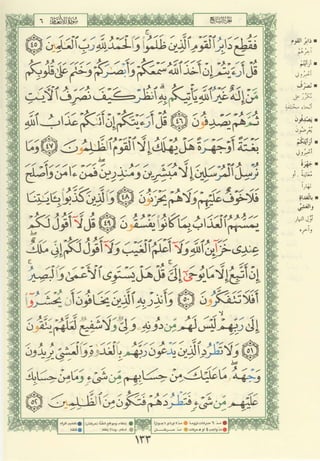 الجُزْءُ السَّابِع
سُورَةُ الأَنْعَام ٦
فَقُطِعَ دَابِرُ ٱلْقَوْمِ ٱلَّذِينَ ظَلَمُوا۟ وَٱلْحَمْدُ لِلَّهِ رَبِّ ٱلْعَٰلَمِينَ ٤٥
قُلْ أَرَءَيْتُمْ إِنْ أَخَذَ ٱللَّهُ سَمْعَكُمْ وَأَبْصَٰرَكُمْ وَخَتَمَ عَلَىٰ قُلُوبِكُم
مَّنْ إِلَٰهٌ غَيْرُ ٱللَّهِ يَأْتِيكُم بِهِ ٱنظُرْ كَيْفَ نُصَرِّفُ ٱلْءَايَٰتِ
ثُمَّ هُمْ يَصْدِفُونَ ٤٦ قُلْ أَرَءَيْتَكُمْ إِنْ أَتَىٰكُمْ عَذَابُ ٱللَّهِ
بَغْتَةً أَوْ جَهْرَةً هَلْ يُهْلَكُ إِلَّا ٱلْقَوْمُ ٱلظَّٰلِمُونَ ٤٧ وَمَا
نُرْسِلُ ٱلْمُرْسَلِينَ إِلَّا مُبَشِّرِينَ وَمُنذِرِينَ فَمَنْ ءَامَنَ وَأَصْلَحَ
فَلَا خَوْفٌ عَلَيْهِمْ وَلَا هُمْ يَحْزَنُونَ ٤٨ وَٱلَّذِينَ كَذَّبُوا۟ بِـَٔايَٰتِنَا
يَمَسُّهُمُ ٱلْعَذَابُ بِمَا كَانُوا۟ يَفْسُقُونَ ٤٩ قُل لَّآ أَقُولُ لَكُمْ
عِندِى خَزَآئِنُ ٱللَّهِ وَلَآ أَعْلَمُ ٱلْغَيْبَ وَلَآ أَقُولُ لَكُمْ إِنِّى مَلَكٌ
إِنْ أَتَّبِعُ إِلَّا مَا يُوحَىٰٓ إِلَىَّ قُلْ هَلْ يَسْتَوِى ٱلْأَعْمَىٰ وَٱلْبَصِيرُ
أَفَلَا تَتَفَكَّرُونَ ٥٠ وَأَنذِرْ بِهِ ٱلَّذِينَ يَخَافُونَ أَن يُحْشَرُوٓا۟
إِلَىٰ رَبِّهِمْ لَيْسَ لَهُم مِّن دُونِهِۦ وَلِىٌّ وَلَا شَفِيعٌ لَّعَلَّهُمْ يَتَّقُونَ
٥١ وَلَا تَطْرُدِ ٱلَّذِينَ يَدْعُونَ رَبَّهُم بِٱلْغَدَوٰةِ وَٱلْعَشِىِّ يُرِيدُونَ
وَجْهَهُۥ مَا عَلَيْكَ مِنْ حِسَابِهِم مِّن شَىْءٍ وَمَا مِنْ حِسَابِكَ
عَلَيْهِم مِّن شَىْءٍ فَتَطْرُدَهُمْ فَتَكُونَ مِنَ ٱلظَّٰلِمِينَ ٥٢
١٣٣
دَابِرُ القَوْمِ
آخِرُهُمْ
أَرَءَيْتُمْ
أَخْبِرُونِي
نُصَرِّفُ
نُكَرِّرُ عَلَى
أَنْحَاءٍ مُخْتَلِفَةٍ
يَصْدِفُونَ
يُعْرِضُونَ
أَرَءَيْتَكُمْ
أَخْبِرُونِي
جَهْرَةً
مُعَايَنَةً، أَوْ
نَهَارًا
بِالغَدَاةِ
وَالعَشِيِّ
أَوَّلِ النَّهَارِ
وَآخِرِهِ